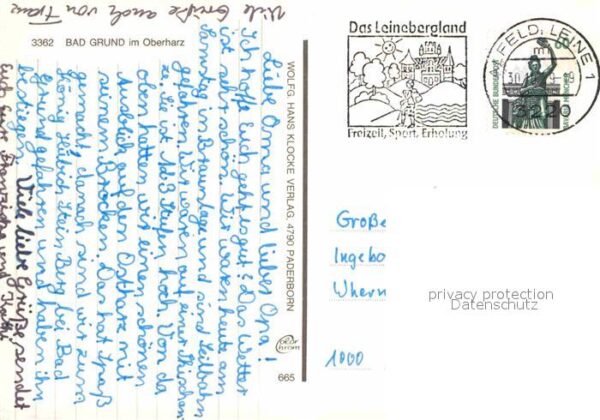 Viele Grüße auch von Franz
3362 BAD GRUND im Oberharz
Liebe Oma und lieber Opa!
Ich hoffe Euch geht es gut? Das Wetter
ist sehr schön. Wir waren heute am
Samstag in Braunlage und sind Seilbahn
gefahren. Wir waren auf einer
Sie ist 123 Stufen hoch. Von da
oben hatten wir einen schönen
Ausblick auf den Ostharz mit
seinem Brocken. Das hat Spaß
gemacht, danach sind wir zum
König Hübich Stein Berg bei Bad
Grund gefahren und haben ihn
bestiegen.
Viele liebe Grüße sendet
Euch eure und
WOLFG. HANS KLOCKE VERLAG, 4790 PADERBORN
color
chrom
665
Das Leinebergland
Freizeit, Sport, Erholung
FELD, LEINE 1
3220
60
DEUTSCHE BUNDESPOST
BAVARIA MÜNCHEN
Große
Ingebo
Whern
1000
privacy protection
Datenschutz